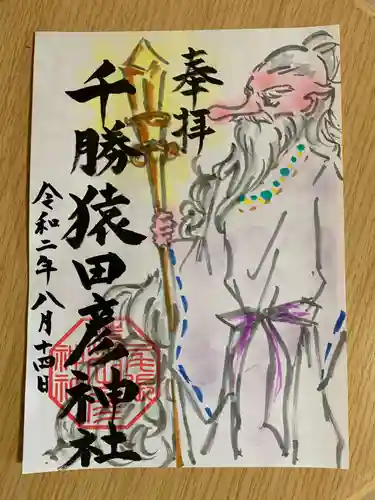 奉拝
千勝猿田彦神社
令和二年八月十四日